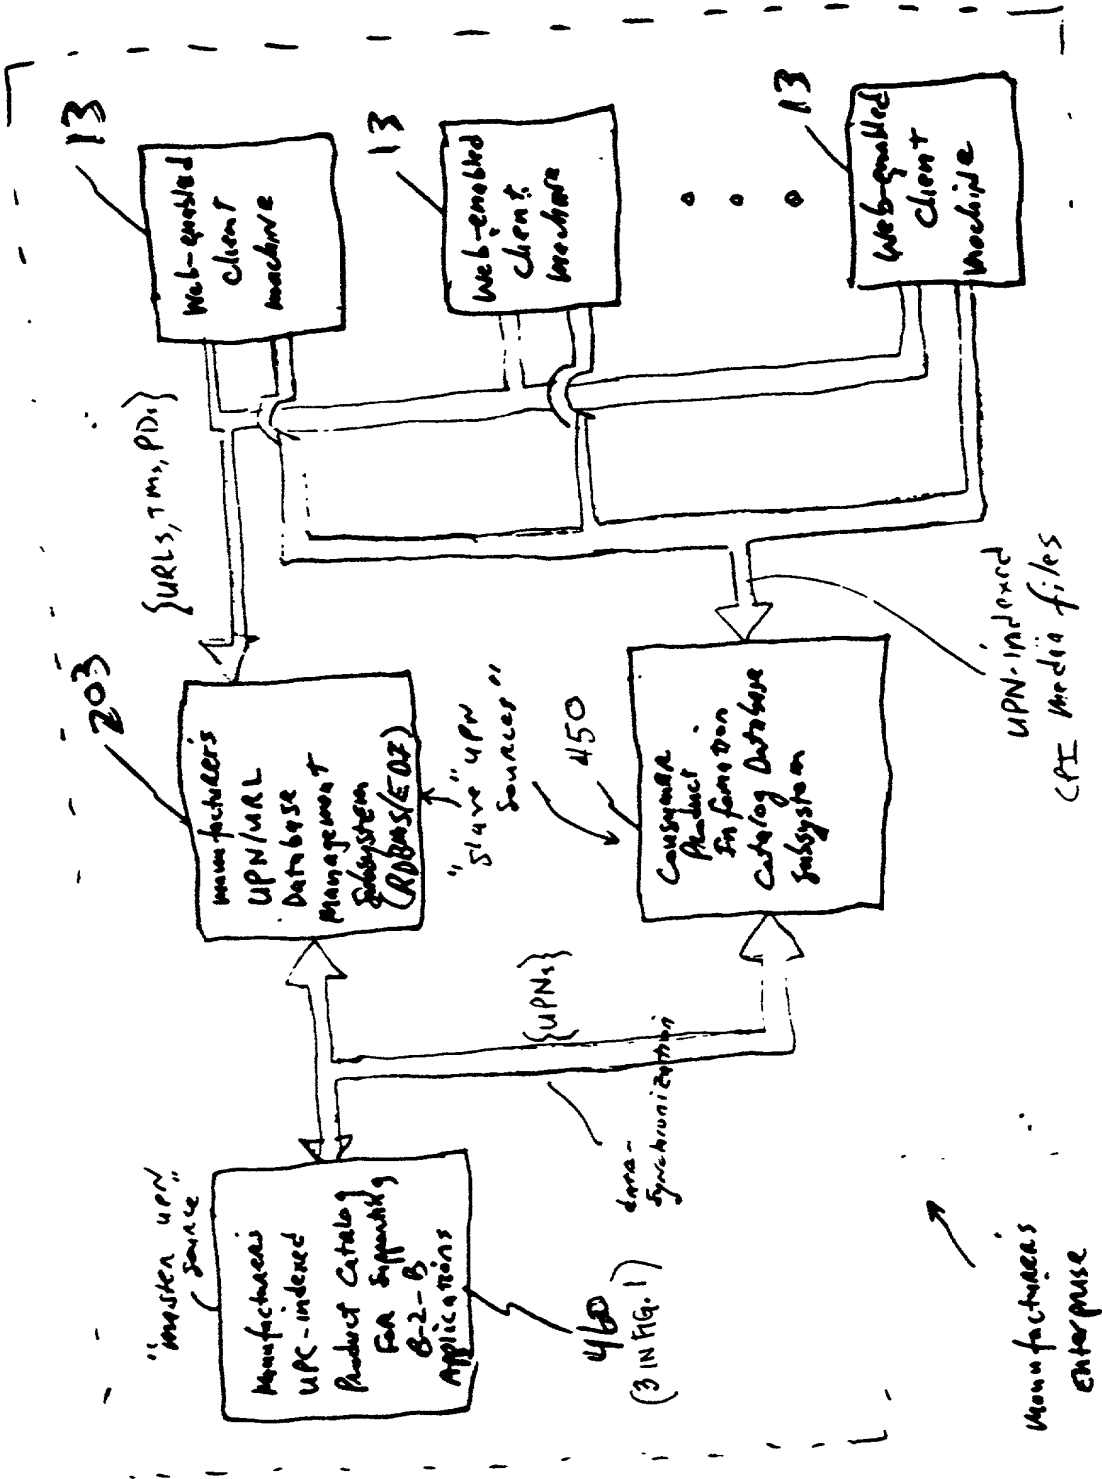 "Master UPN
Source"
Manufacturers
UPC-indexed
Product Catalog
For Supporting
B-2-B
Applications
460
(3 IN FIG. 1)
{UPNs}
Data-
Synchronization
203
Manufacturers
UPN/URL
Database
Management
Subsystem
(RDBMS/EDI)
"Slave" UPN
Sources"
450
Consumer
Product
Information
Catalog Database
Subsystem
{URLs, TMs, PDs}
UPN-indexed
CPI media files
13
Web-enabled
Client
machine
13
Web-enabled
Client
machine
13
Web-enabled
Client
machine
Manufacturers
Enterprise